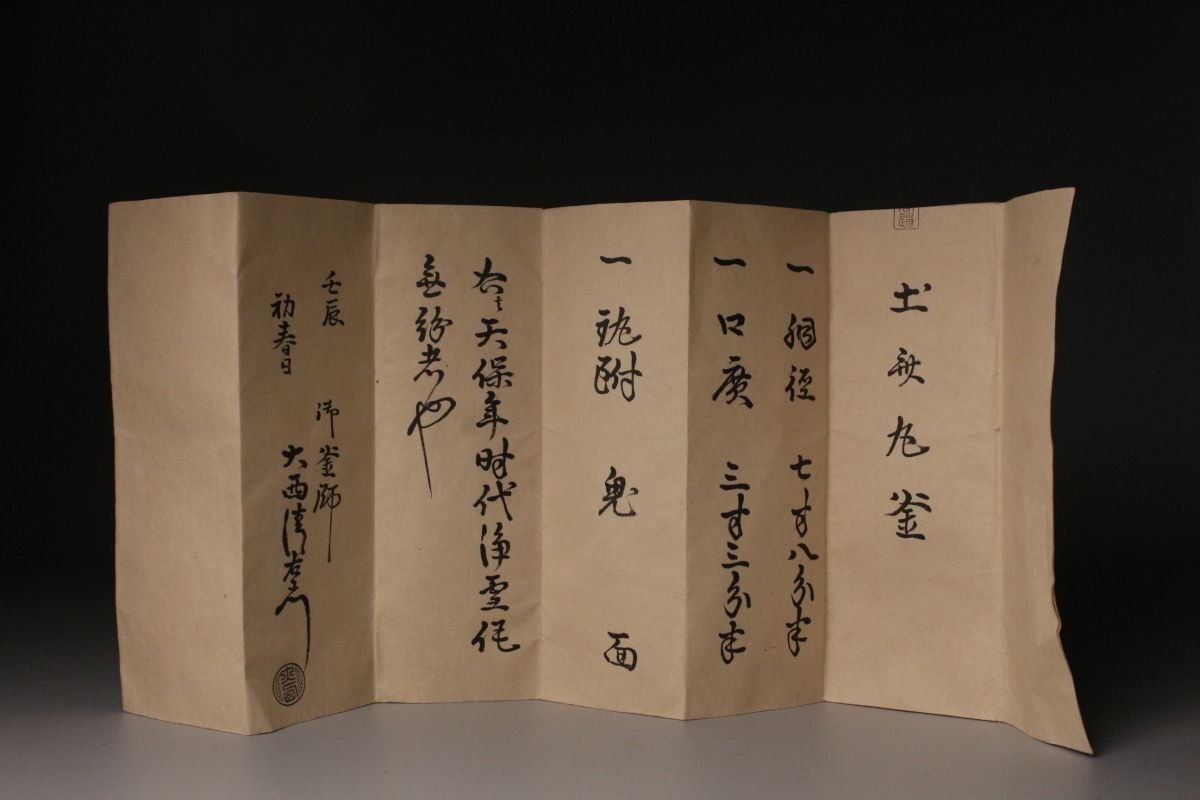 一 胴径 七寸八分半
一 口廣 三寸三分半
一 鐶附 鬼面
右者天保年时代浄雪作
無紛者也
壬辰
初春日
御釜師
大西清右衛門